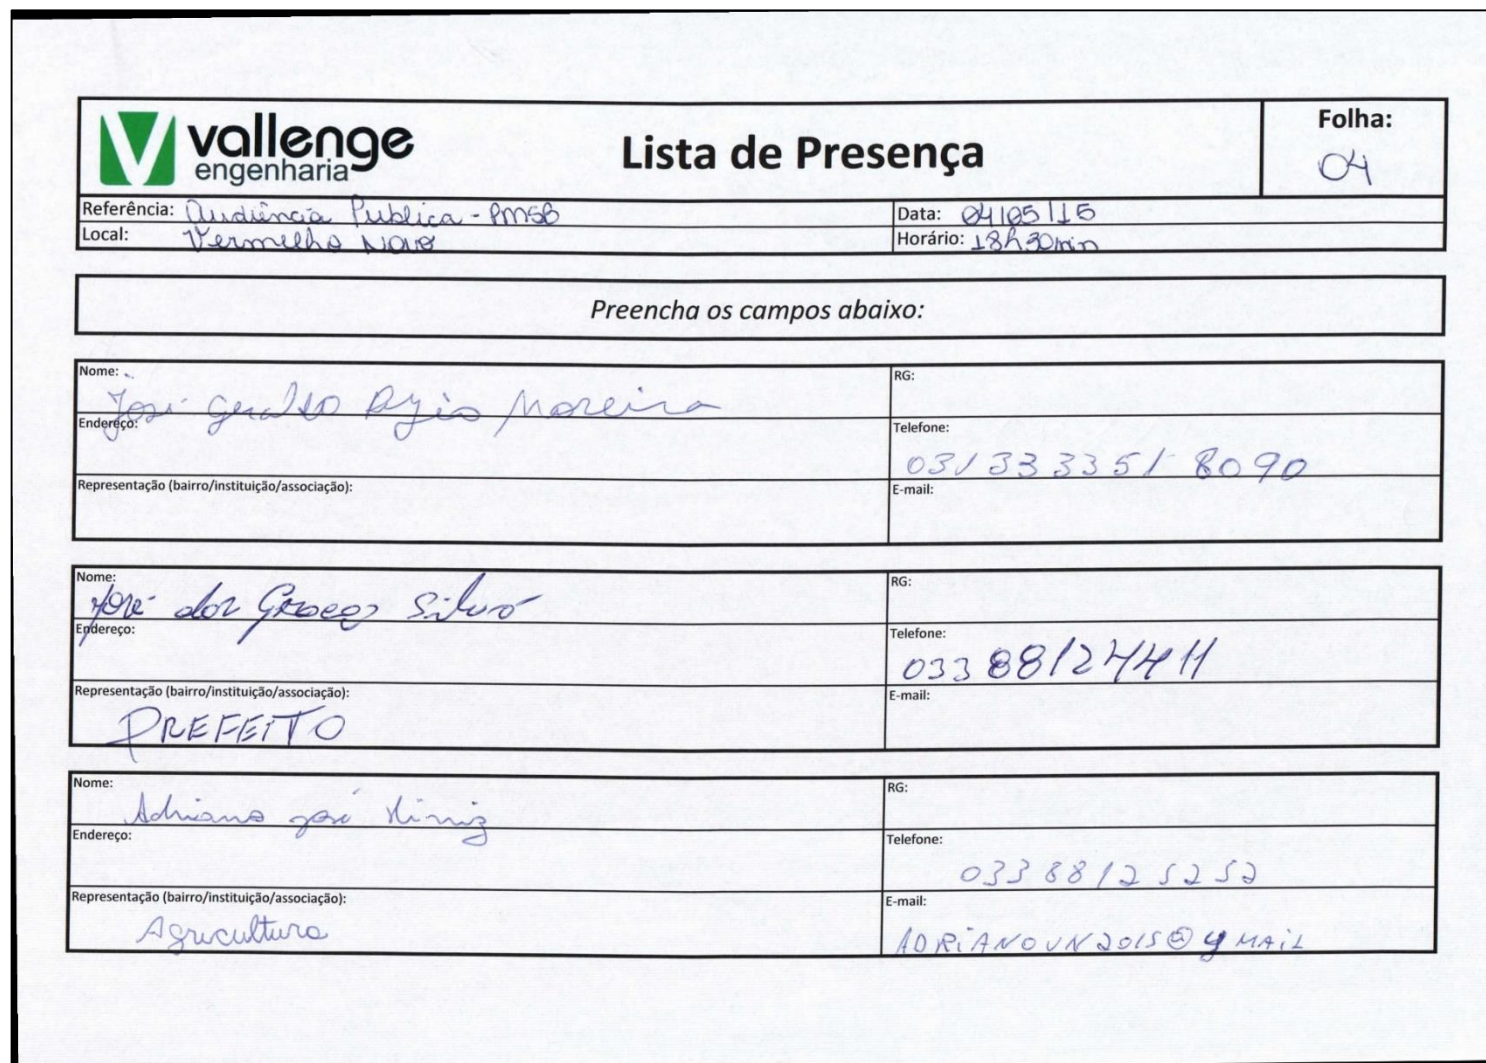 vallenge
engenharia
Lista de Presença
Folha:
04
Referência: Audiência Publica - PMSB
Data: 04/05/15
Local: Vermelho Novo
Horário: 18h30min
Preencha os campos abaixo:
Nome: José Geraldo Moreira
RG:
Endereço:
Telefone: 031 333351 8090
Representação (bairro/instituição/associação):
E-mail:
Nome: José das Graças Silva
RG:
Endereço:
Telefone: 033 88124411
Representação (bairro/instituição/associação): PREFEITO
E-mail:
Nome: Adriano José
RG:
Endereço:
Telefone: 033 88125252
Representação (bairro/instituição/associação): Agricultura
E-mail: ADRIANOVN2015@gMAIL